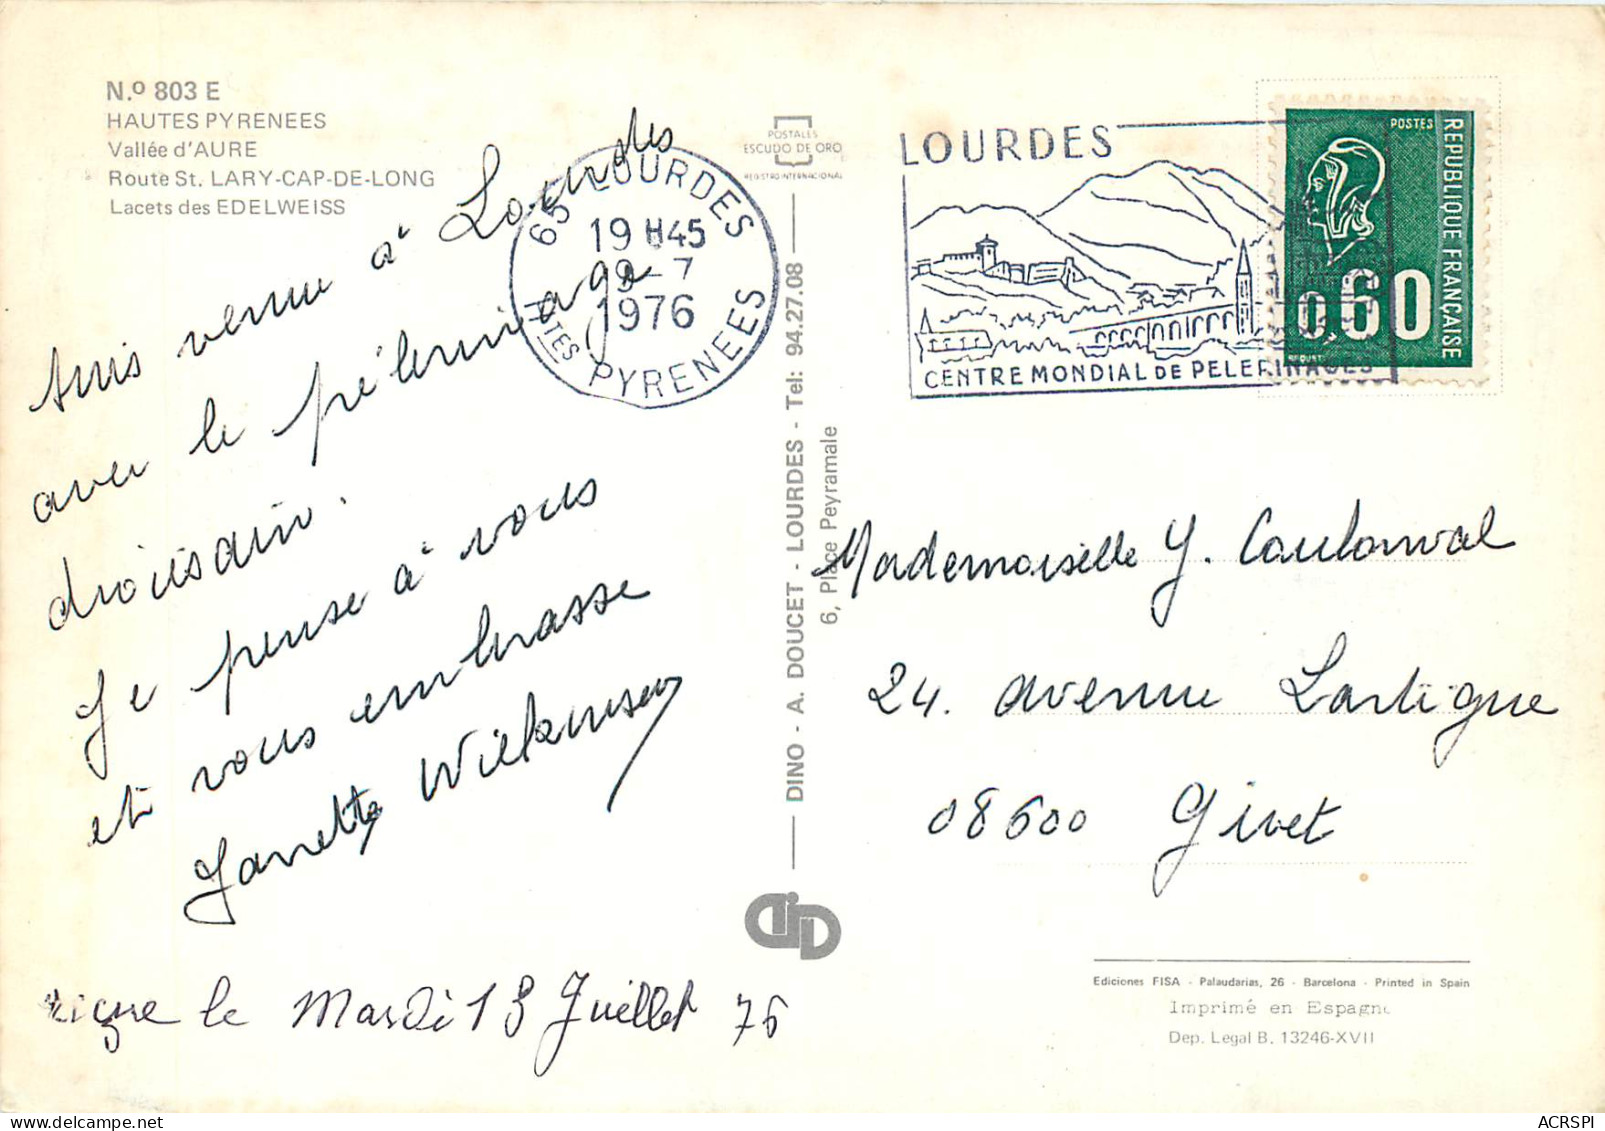 N.º 803 E
HAUTES PYRENEES
Vallée d'AURE
Route St. LARY-CAP-DE-LONG
Lacets des EDELWEISS
suis venue à Lourdes
avec le pélerinage
diocésain.
Je pense à vous
et vous embrasse
Janette
reçue le Mardi 13 Juillet 76
65 LOURDES
19 H45
9-7
1976
HTES PYRENEES
POSTALES
ESCUDO DE ORO
REGISTRO INTERNACIONAL
DINO - A. DOUCET - LOURDES - Tel: 94.27.08
6, Place Peyramale
LOURDES
CENTRE MONDIAL DE PELERINAGES
POSTES
REPUBLIQUE FRANÇAISE
0,60
Mademoiselle Y.
24. avenue Lartigue
08600 Givet
Ediciones FISA - Palaudarias, 26 - Barcelona - Printed in Spain
Imprimé en Espagne
Dep. Legal B. 13246-XVII
ACRSPI